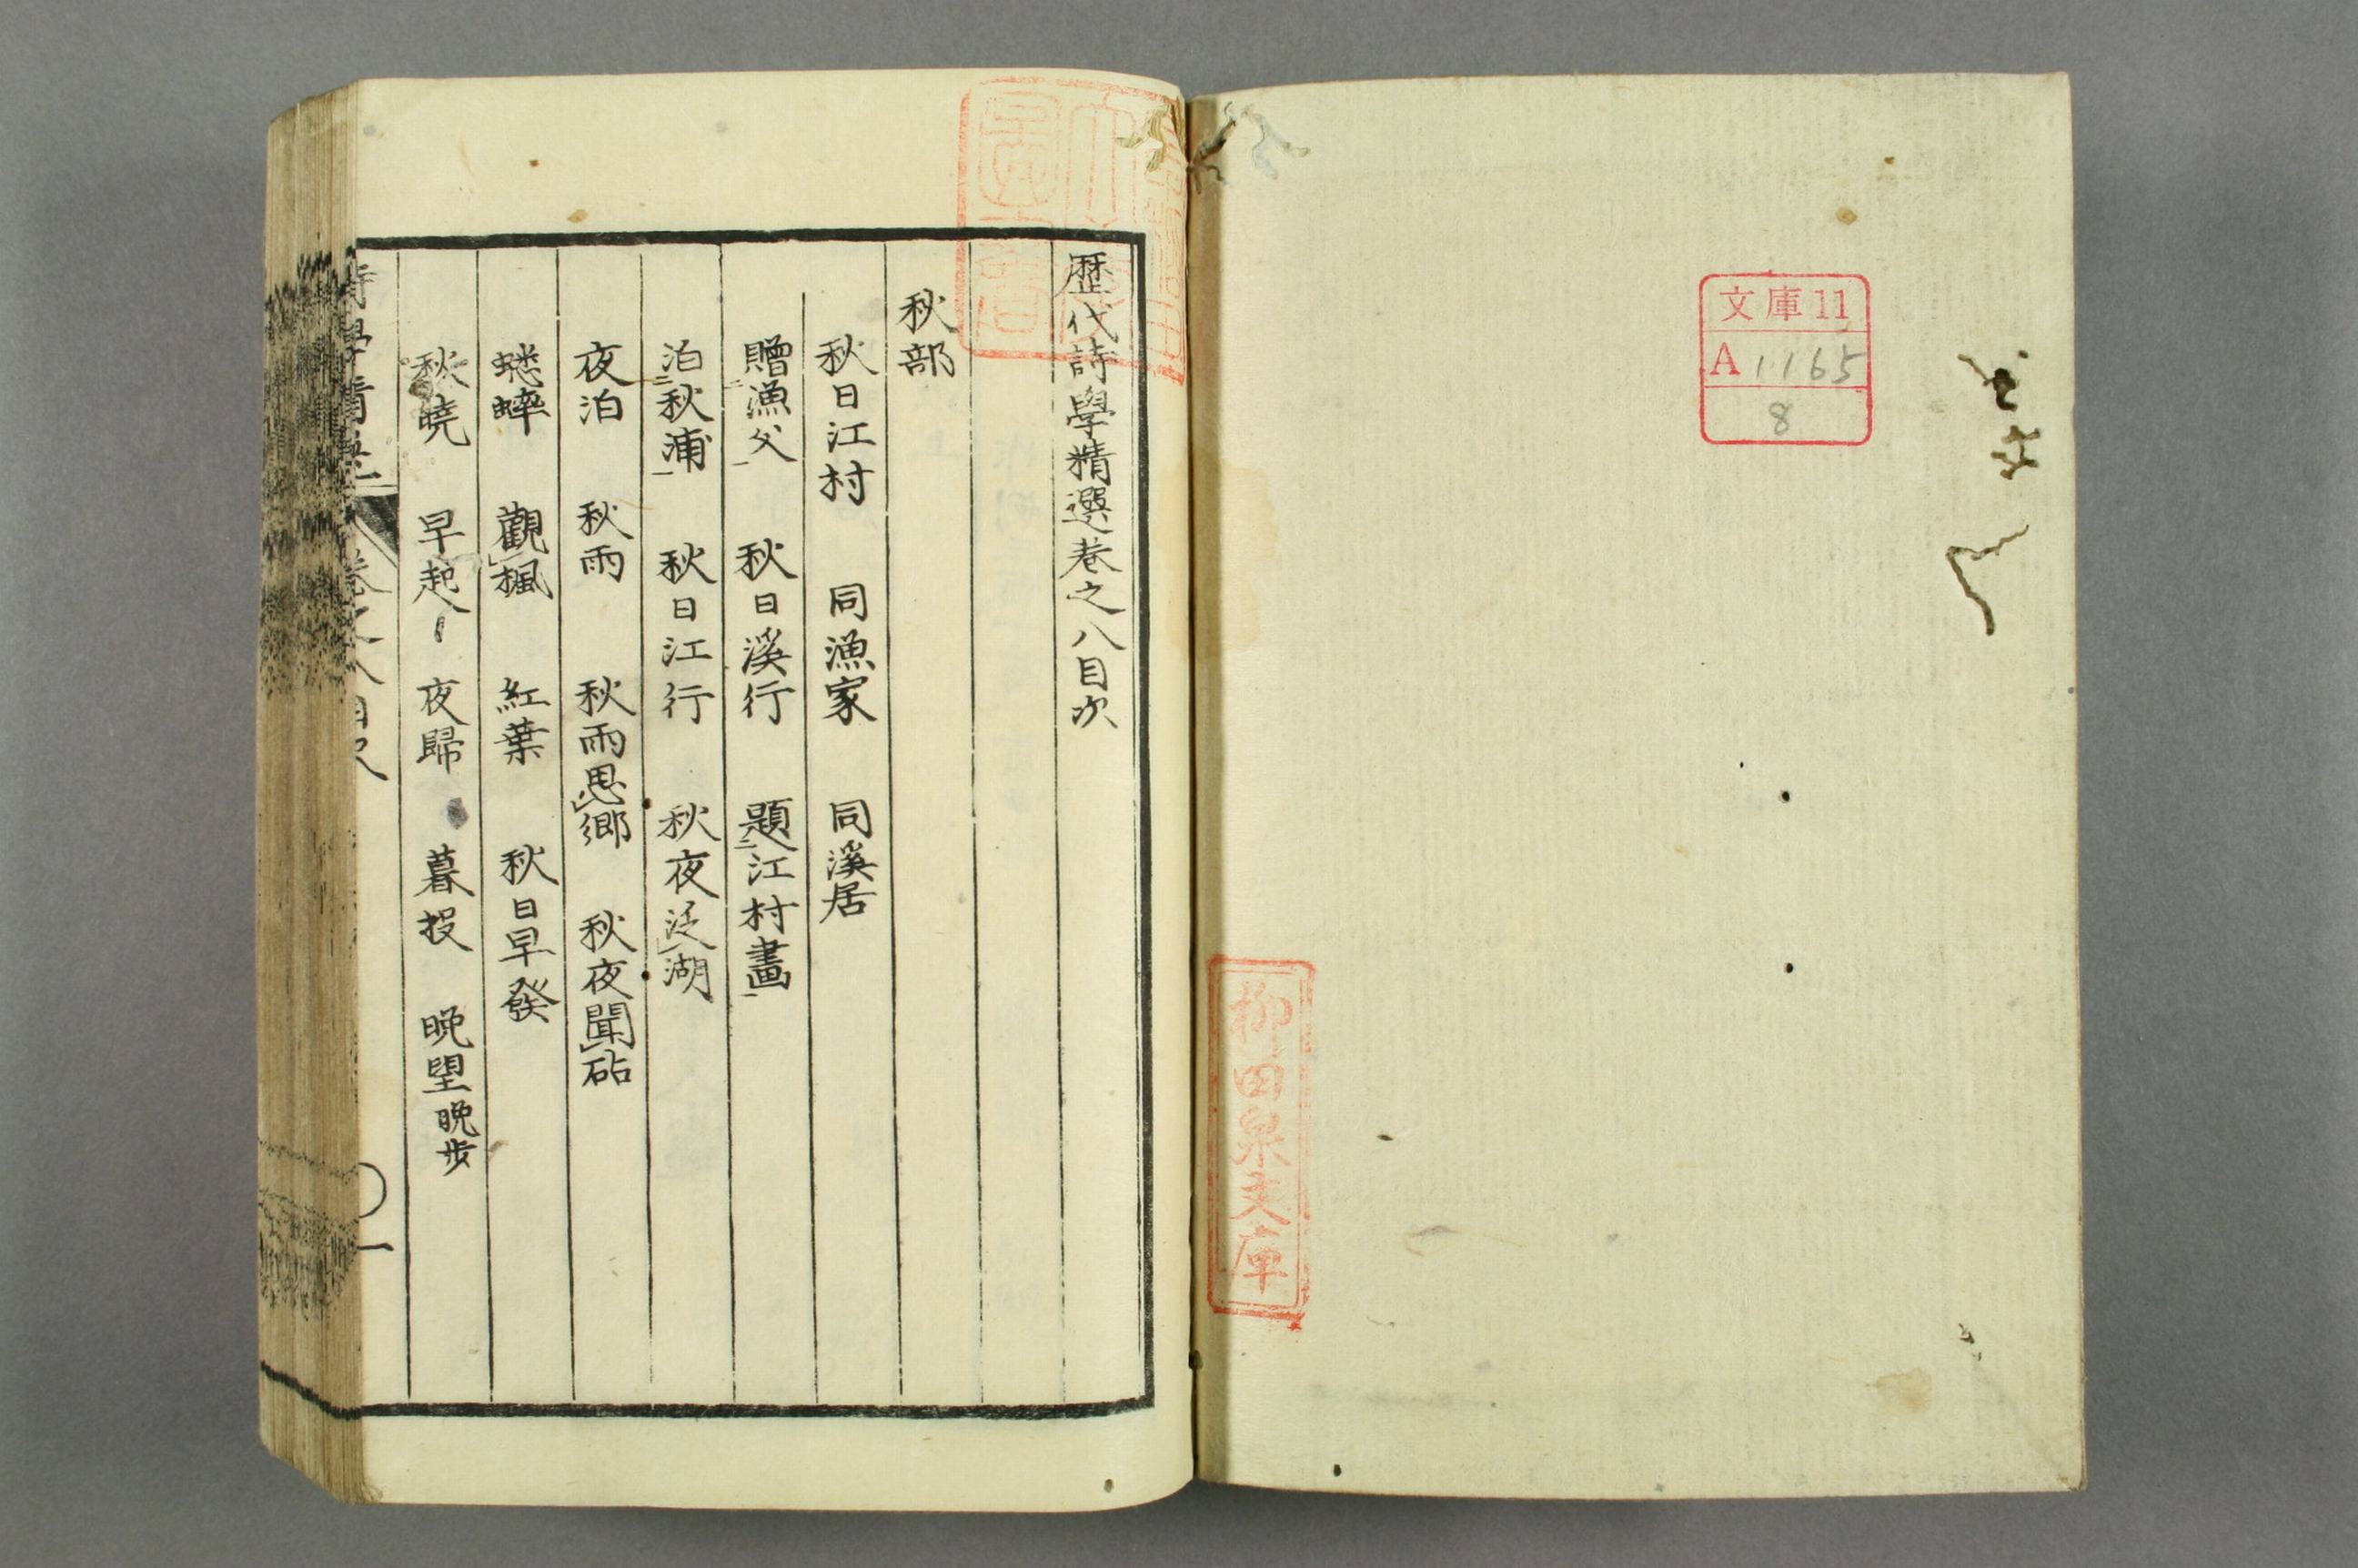 文庫11
A 1165
8
柳田泉文庫
歴代詩學精選巻之八目次
秋部
秋日江村 同漁家 同溪居
贈二漁父一 秋日溪行 題二江村畫一
泊二秋浦一 秋日江行 秋夜泛レ湖
夜泊 秋雨 秋雨思レ郷 秋夜聞レ砧
蟋蟀 觀レ楓 紅葉 秋日早發
秋曉 早起 夜歸 暮投 晩望晩歩
詩學精選 巻之八目次 一